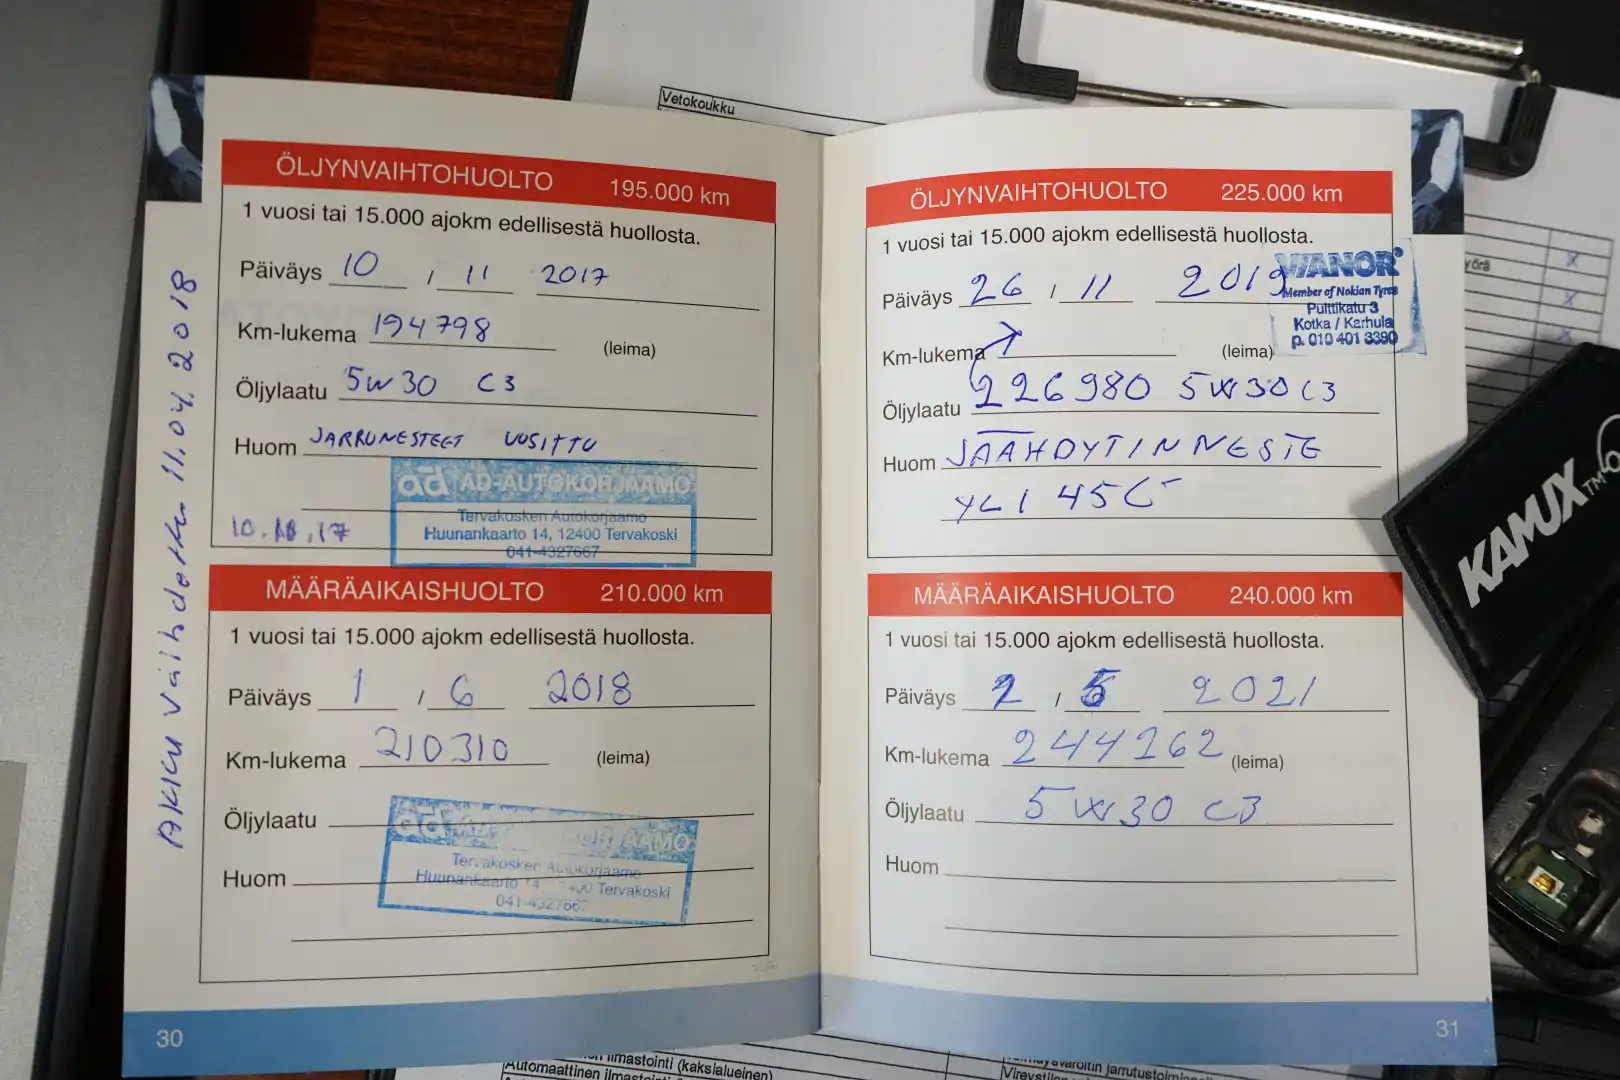 Vetokoukku
ÖLJYNVAIHTOHUOLTO 195.000 km
1 vuosi tai 15.000 ajokm edellisestä huollosta.
Päiväys 10 / 11 2017
Km-lukema 194798 (leima)
Öljylaatu 5W30 C3
Huom JARRUNESTEET UUSITTU
ad AD-AUTOKORJAAMO
Tervakosken Autokorjaamo
Huunankaarto 14, 12400 Tervakoski
041-4327667
AKKU vaihdettu 11.04.2018
MÄÄRÄAIKAISHUOLTO 210.000 km
1 vuosi tai 15.000 ajokm edellisestä huollosta.
Päiväys 1 / 6 2018
Km-lukema 210310 (leima)
Öljylaatu
Huom
ad
Tervakosken Autokorjaamo
Huunankaarto 14 Tervakoski
30
ÖLJYNVAIHTOHUOLTO 225.000 km
1 vuosi tai 15.000 ajokm edellisestä huollosta.
Päiväys 26 / 11 2019
VIANOR
Member of Nokian Tyres
Pulttikatu 3
Kotka / Karhula
p. 010 401 3390
Km-lukema (leima)
Öljylaatu 226980 5W30 C3
Huom JÄÄHDYTINNESTE
YLI 45C
MÄÄRÄAIKAISHUOLTO 240.000 km
1 vuosi tai 15.000 ajokm edellisestä huollosta.
Päiväys 2 / 5 2021
Km-lukema 244262 (leima)
Öljylaatu 5W30 C3
Huom
31
KAMUX TM
Automaattinen ilmastointi (kaksialueinen)